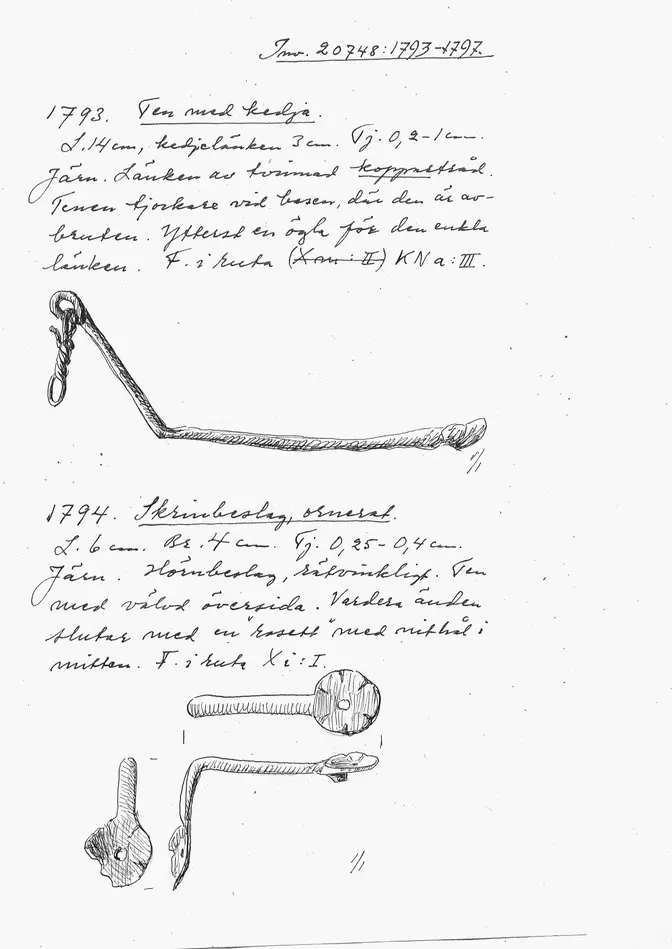 Inv. 20748:1793-1797.
1793. Ten med kedja.
L. 14 cm, kedjelänken 3 cm. Tj. 0,2-1 cm.
Järn. Länken av tvinnad koppartråd.
Tenen tjockare vid basen, där den är av-
bruten. Ytterst en ögla för den enkla
länken. F. i ruta (Xm: II) KNa: III.
1/1
1794. Skrinbeslag, ornerat.
L. 6 cm. Br. 4 cm. Tj. 0,25-0,4 cm.
Järn. Hörnbeslag, rätvinkligt. Ten
med välvd översida. Vardera änden
slutar med en "rosett" med nithål i
mitten. F. i ruta Xi: I.
1/1